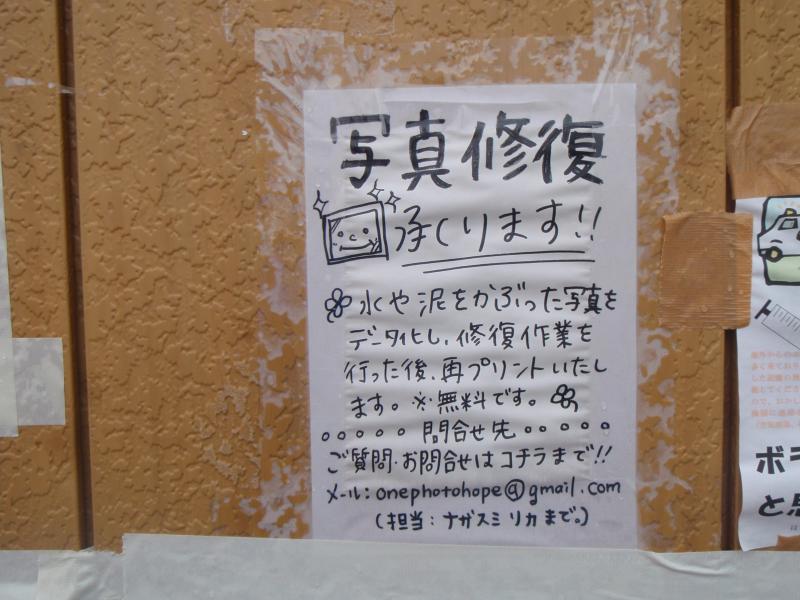 写真修復
承くります!!
水や泥をかぶった写真を
データ化し、修復作業を
行った後、再プリントいたし
ます。※無料です。
。。。。。問合せ先。。。。。
ご質問・お問合せはコチラまで!!
メール:onephotohope@gmail.com
(担当:ナガスミリカまで。)
ボラ
と思